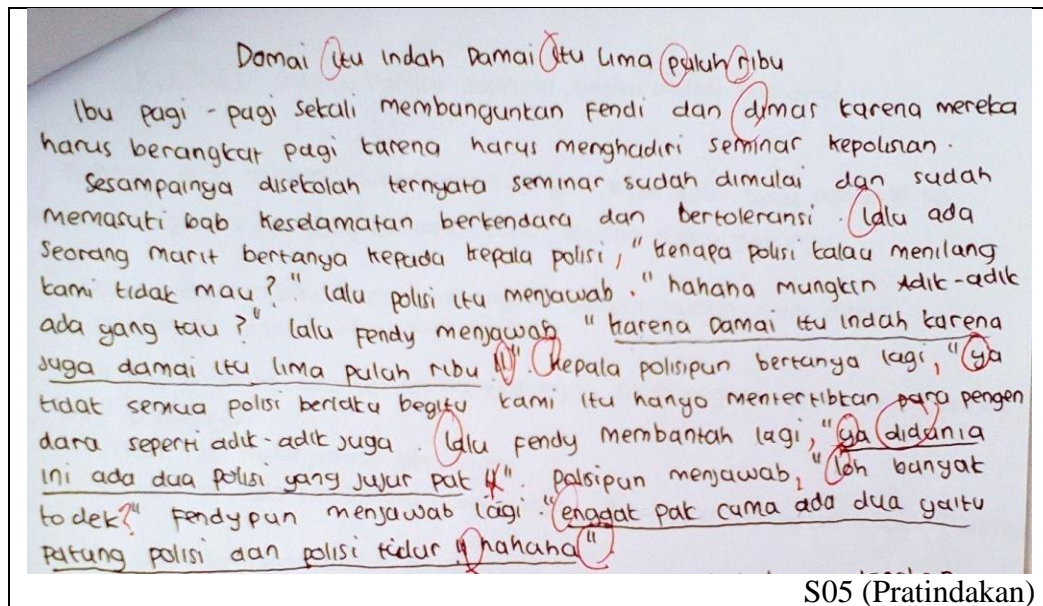 Damai itu indah Damai itu lima puluh ribu
Ibu pagi - pagi sekali membangunkan Fendi dan dimas karena mereka
harus berangkat pagi karena harus menghadiri seminar kepolisian.
Sesampainya disekolah ternyata seminar sudah dimulai dan sudah
memasuki bab keselamatan berkendara dan bertoleransi. lalu ada
seorang murit bertanya kepada kepala polisi, "kenapa polisi kalau menilang
kami tidak mau?" lalu polisi itu menjawab. "hahaha mungkin Adik-adik
ada yang tau?" lalu Fendy menjawab "karena Damai itu indah karena
juga damai itu lima puluh ribu". Kepala polisipun bertanya lagi, "ya
tidak semua polisi berlaku begitu kami itu hanya mentertibkan para pengen
dara seperti adik-adik juga. lalu Fendy membantah lagi, "ya didunia
ini ada dua polisi yang jujur pak". Polsipun menjawab, "loh banyak
to dek?" Fendypun menjawab lagi. "enggak pak cuma ada dua yaitu
patung polisi dan polisi tidur" hahaha"
S05 (Pratindakan)